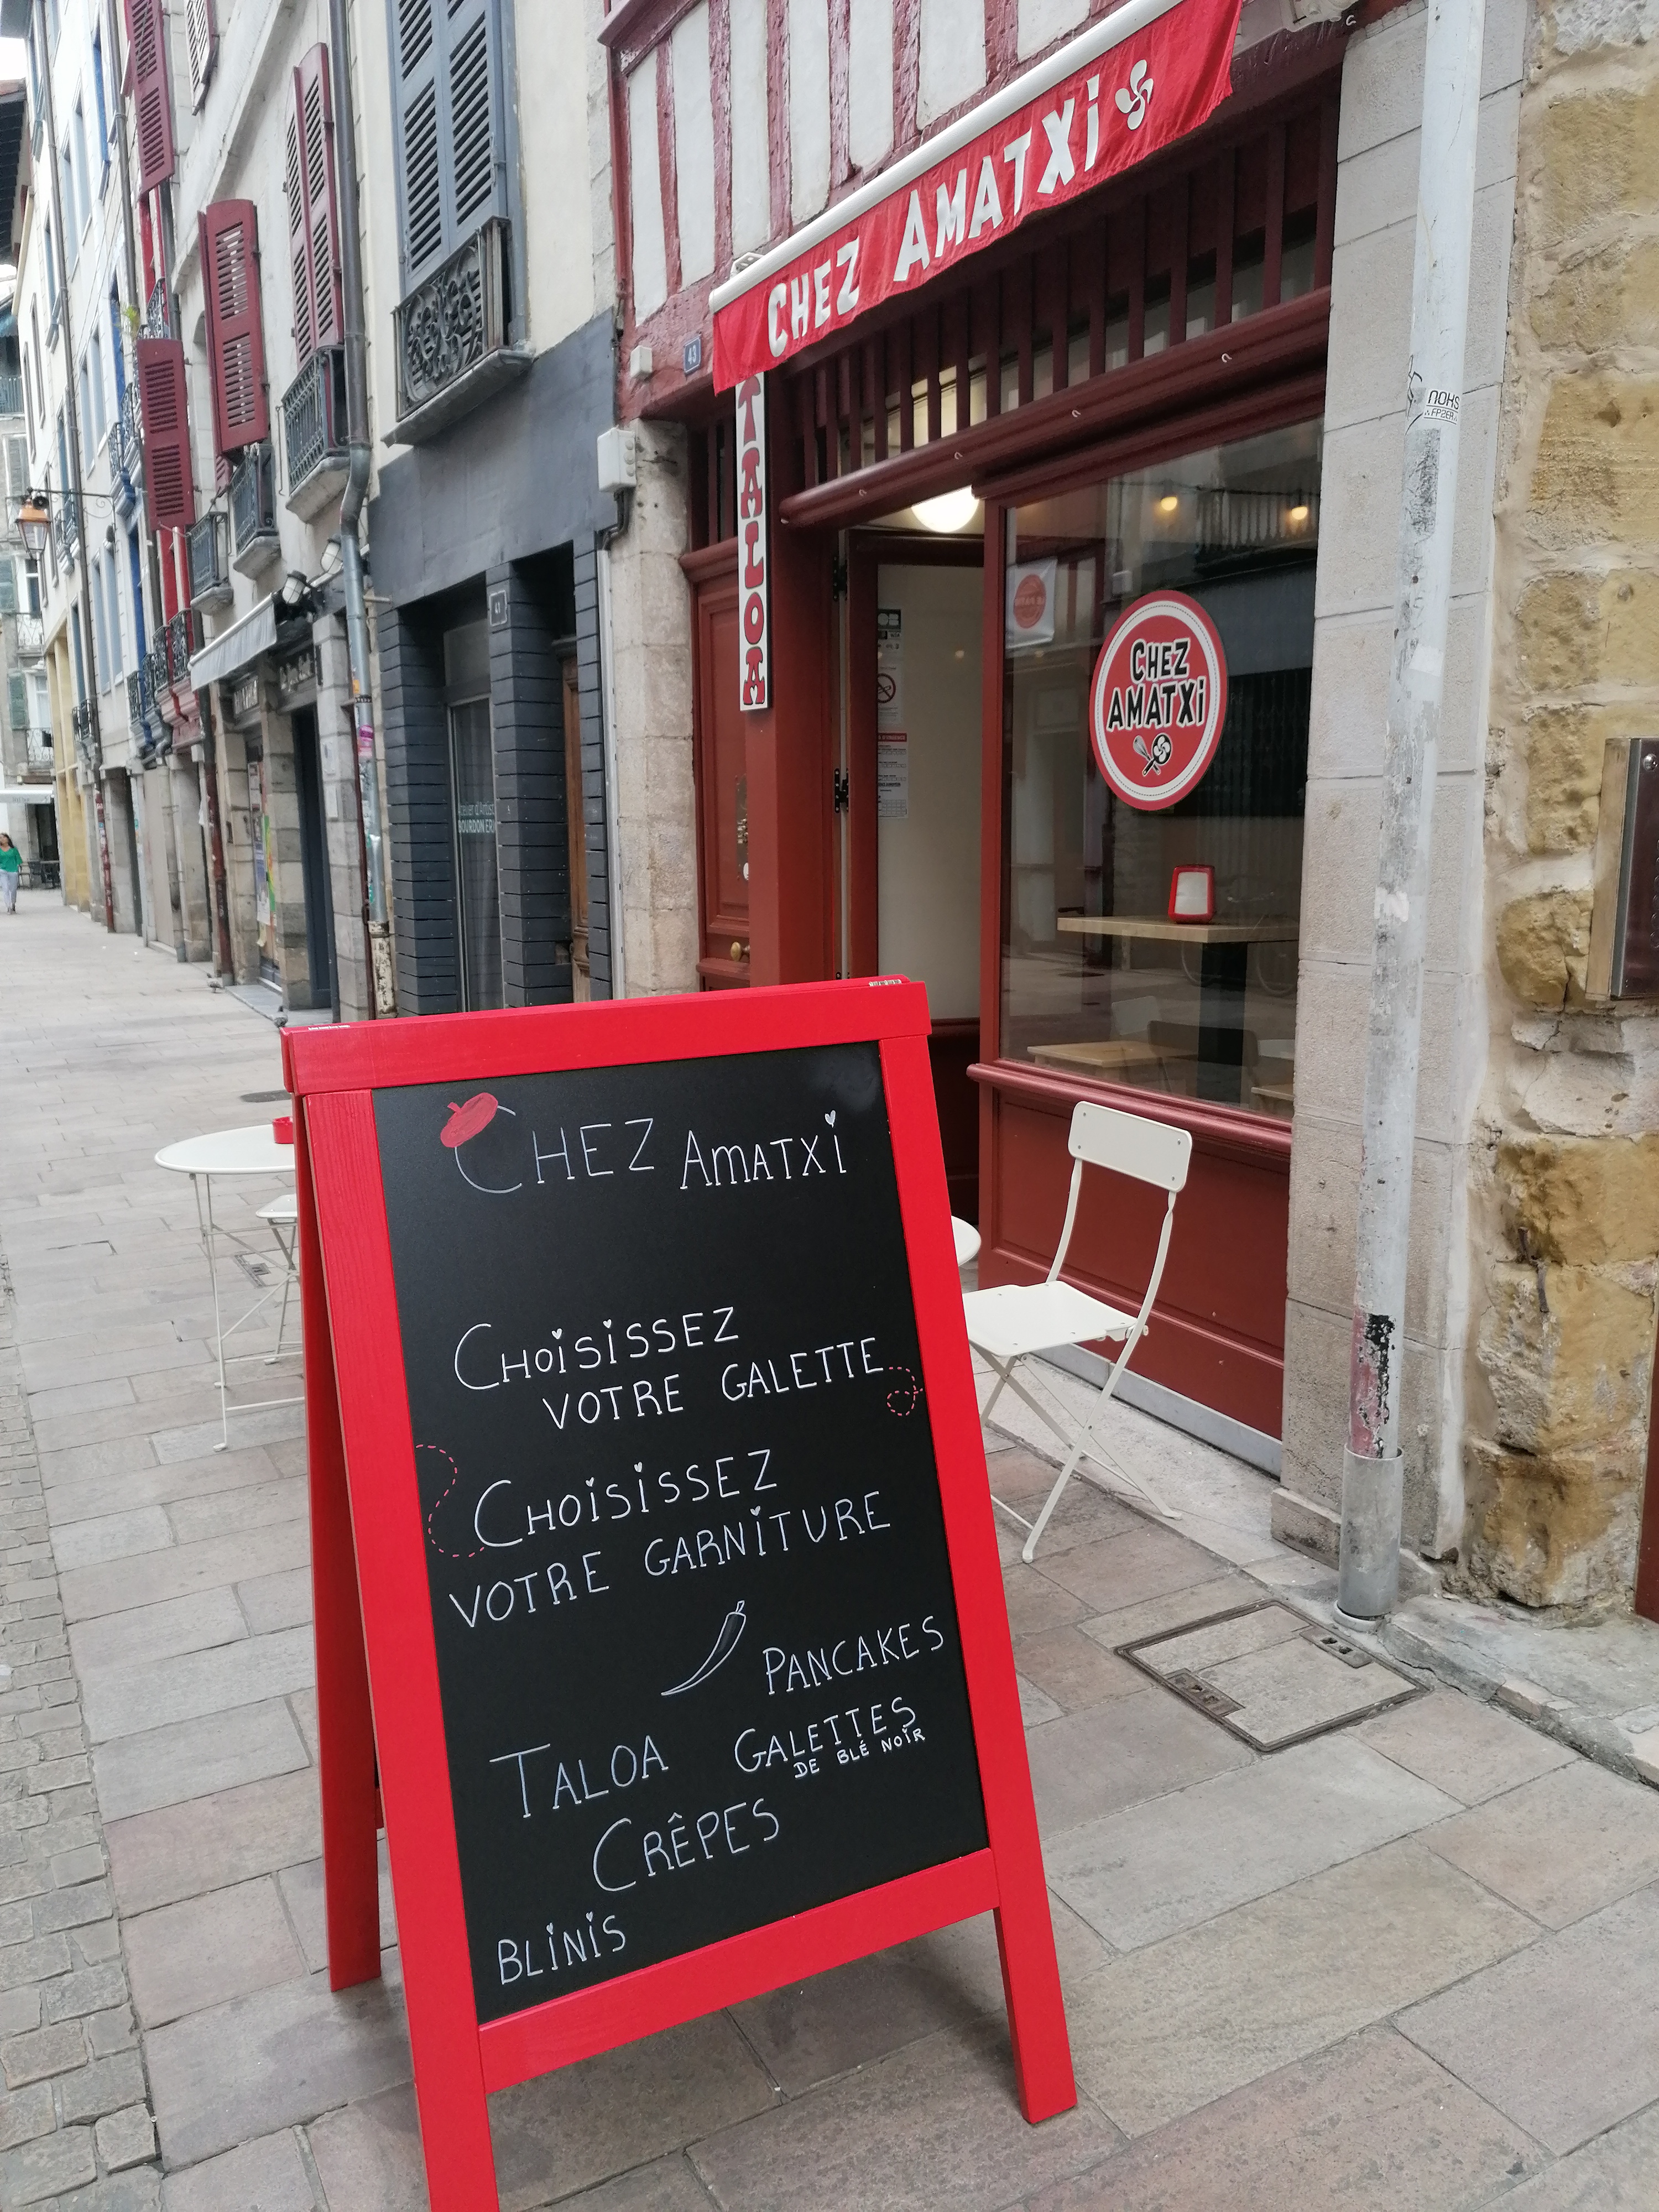 CHEZ AMATXi
43
TALOA
NOKS
41
CHEZ
AMATXi
Atelier d'Artist
CHEZ AMATXi
CHOiSiSSEZ
VOTRE GALETTE
CHOiSiSSEZ
VOTRE GARNiTURE
PANCAKES
TALOA
GALETTES
DE BLÉ NOiR
CRÊPES
BLiNiS